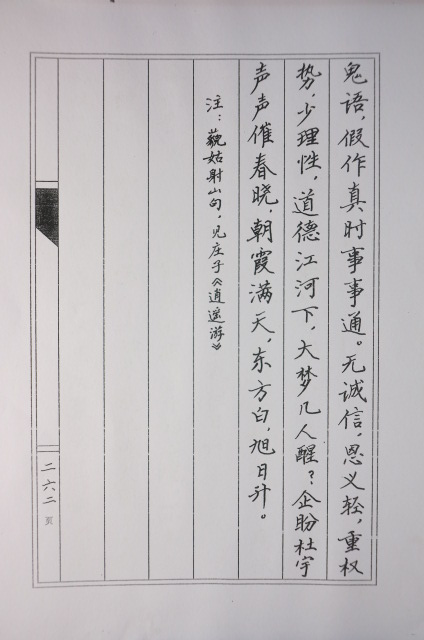 鬼语，假作真时事事通。无诚信，恩义轻，重权
势，少理性，道德江河下，大梦几人醒？企盼杜宇
声声催春晓，朝霞满天，东方白，旭日升。
注：藐姑射山句，见庄子《逍遥游》
二六二页